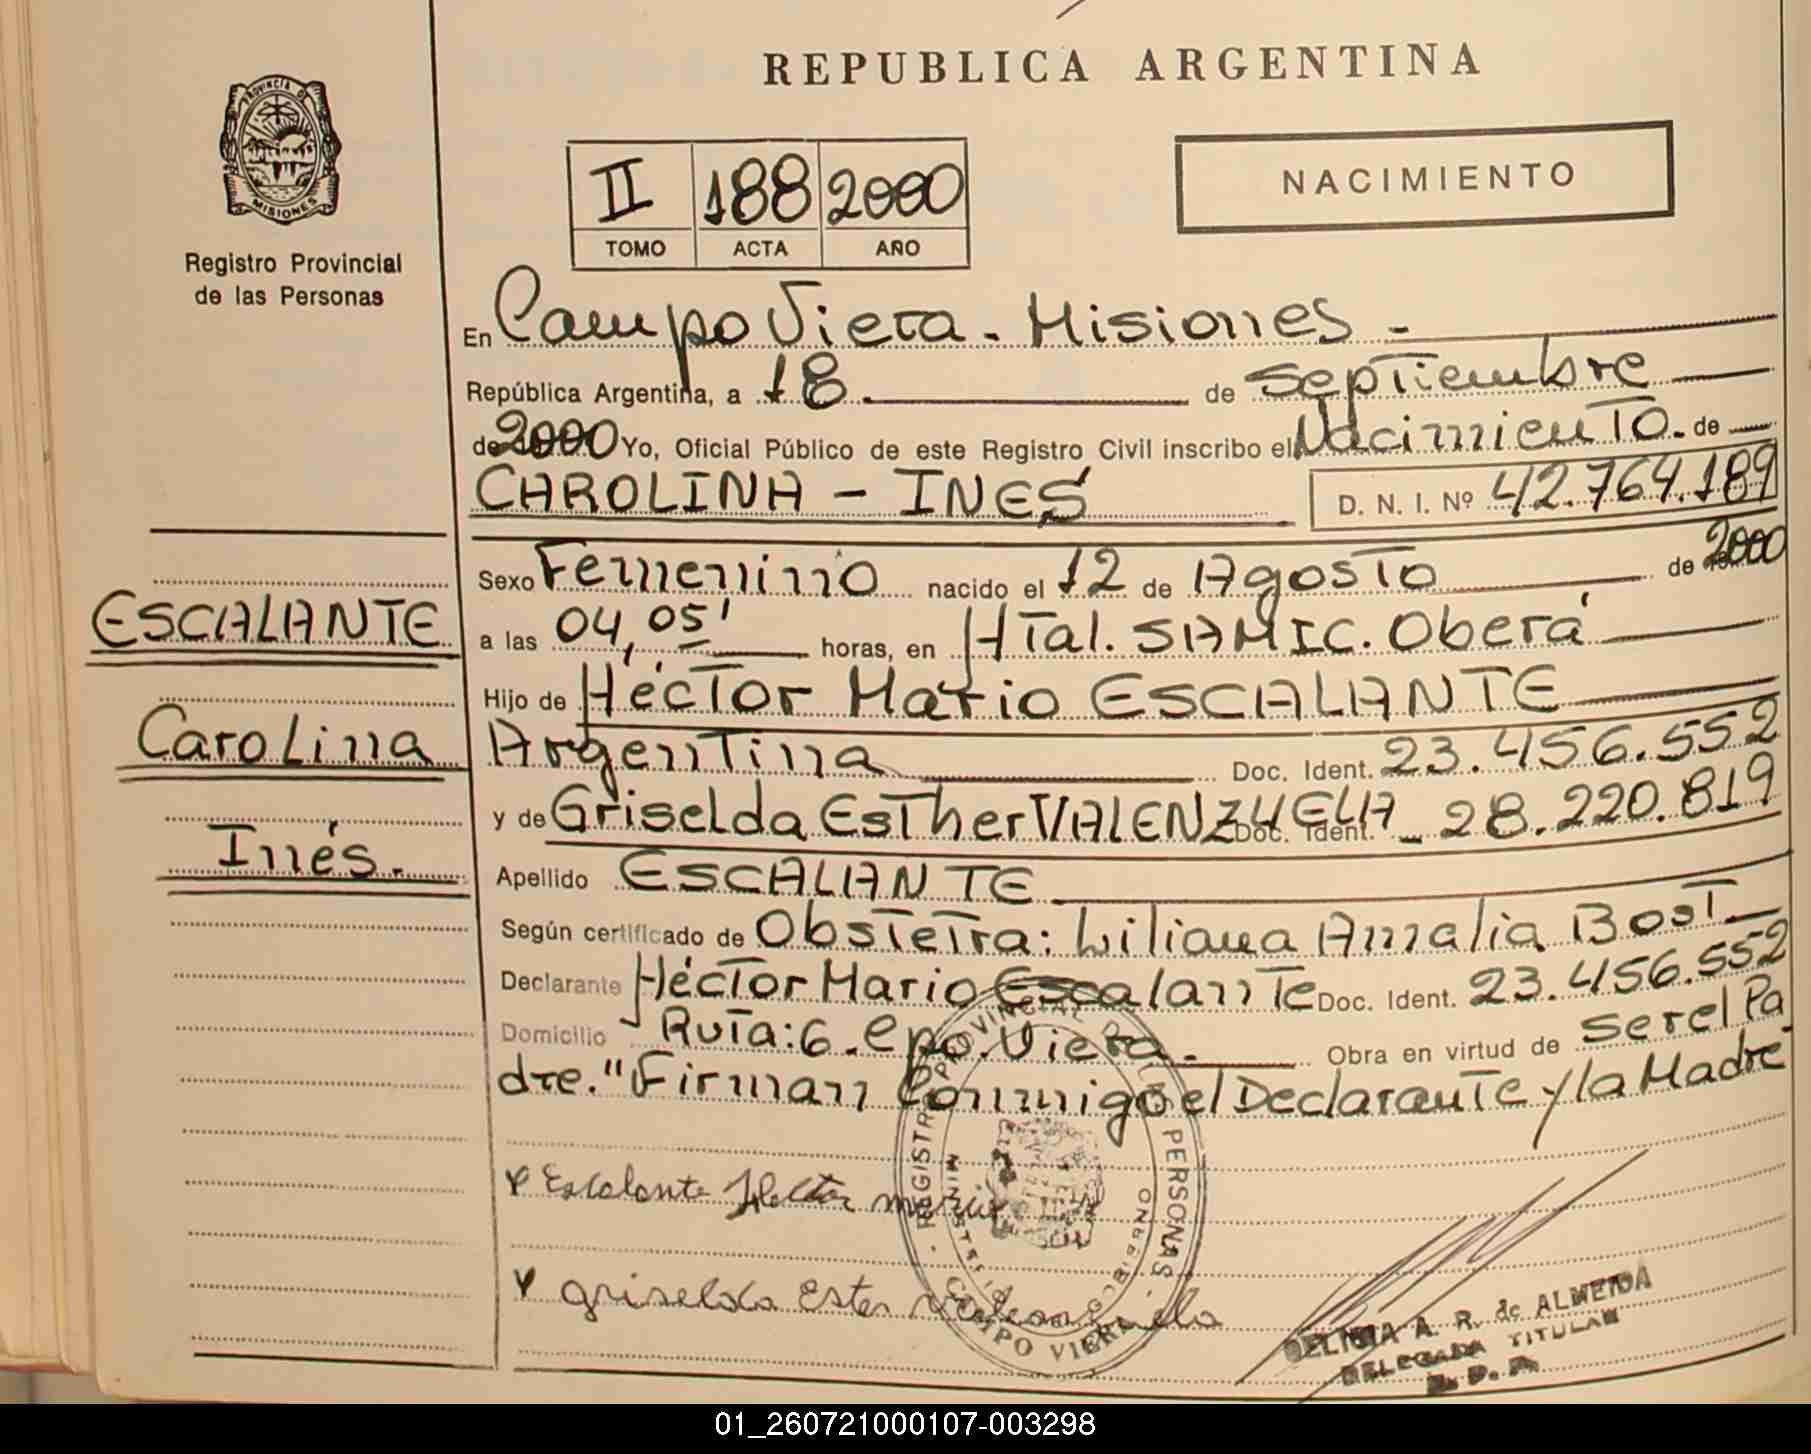 REPUBLICA ARGENTINA
PROVINCIA DE
MISIONES
Registro Provincial
de las Personas
II 188 2000
TOMO ACTA AÑO
NACIMIENTO
En Campo Viera - Misiones -
República Argentina, a 18 de Septiembre
de 2000 Yo, Oficial Público de este Registro Civil inscribo el Nacimiento - de
CAROLINA - INÉS D. N. I. Nº 42.764.189
Sexo Femenino nacido el 12 de Agosto de 2000
a las 04,05' horas, en HTal. SAMIC. Oberá
Hijo de Héctor Mario ESCALANTE
Argentina Doc. Ident. 23.456.552
y de Griselda Esther VALENZUELA Doc. Ident. - 28.220.819
Apellido ESCALANTE
Según certificado de Obstetra: Liliana Amalia Bost
Declarante Héctor Mario Escalante Doc. Ident. 23.456.552
Domicilio Ruta: 6. Cpo. Viera - Obra en virtud de ser el Pa
dre." Firman Conmigo el Declarante y la Madre
ESCALANTE
Carolina
Inés.
Escalante Hector mario
griselda Ester valenzuela
REGISTRO PROVINCIAL DE LAS PERSONAS
MINISTERIO DE GOBIERNO
CAMPO VIERA
DELICIA A. R. de ALMEIDA
DELEGADA TITULAR
R. P. P.
01_260721000107-003298